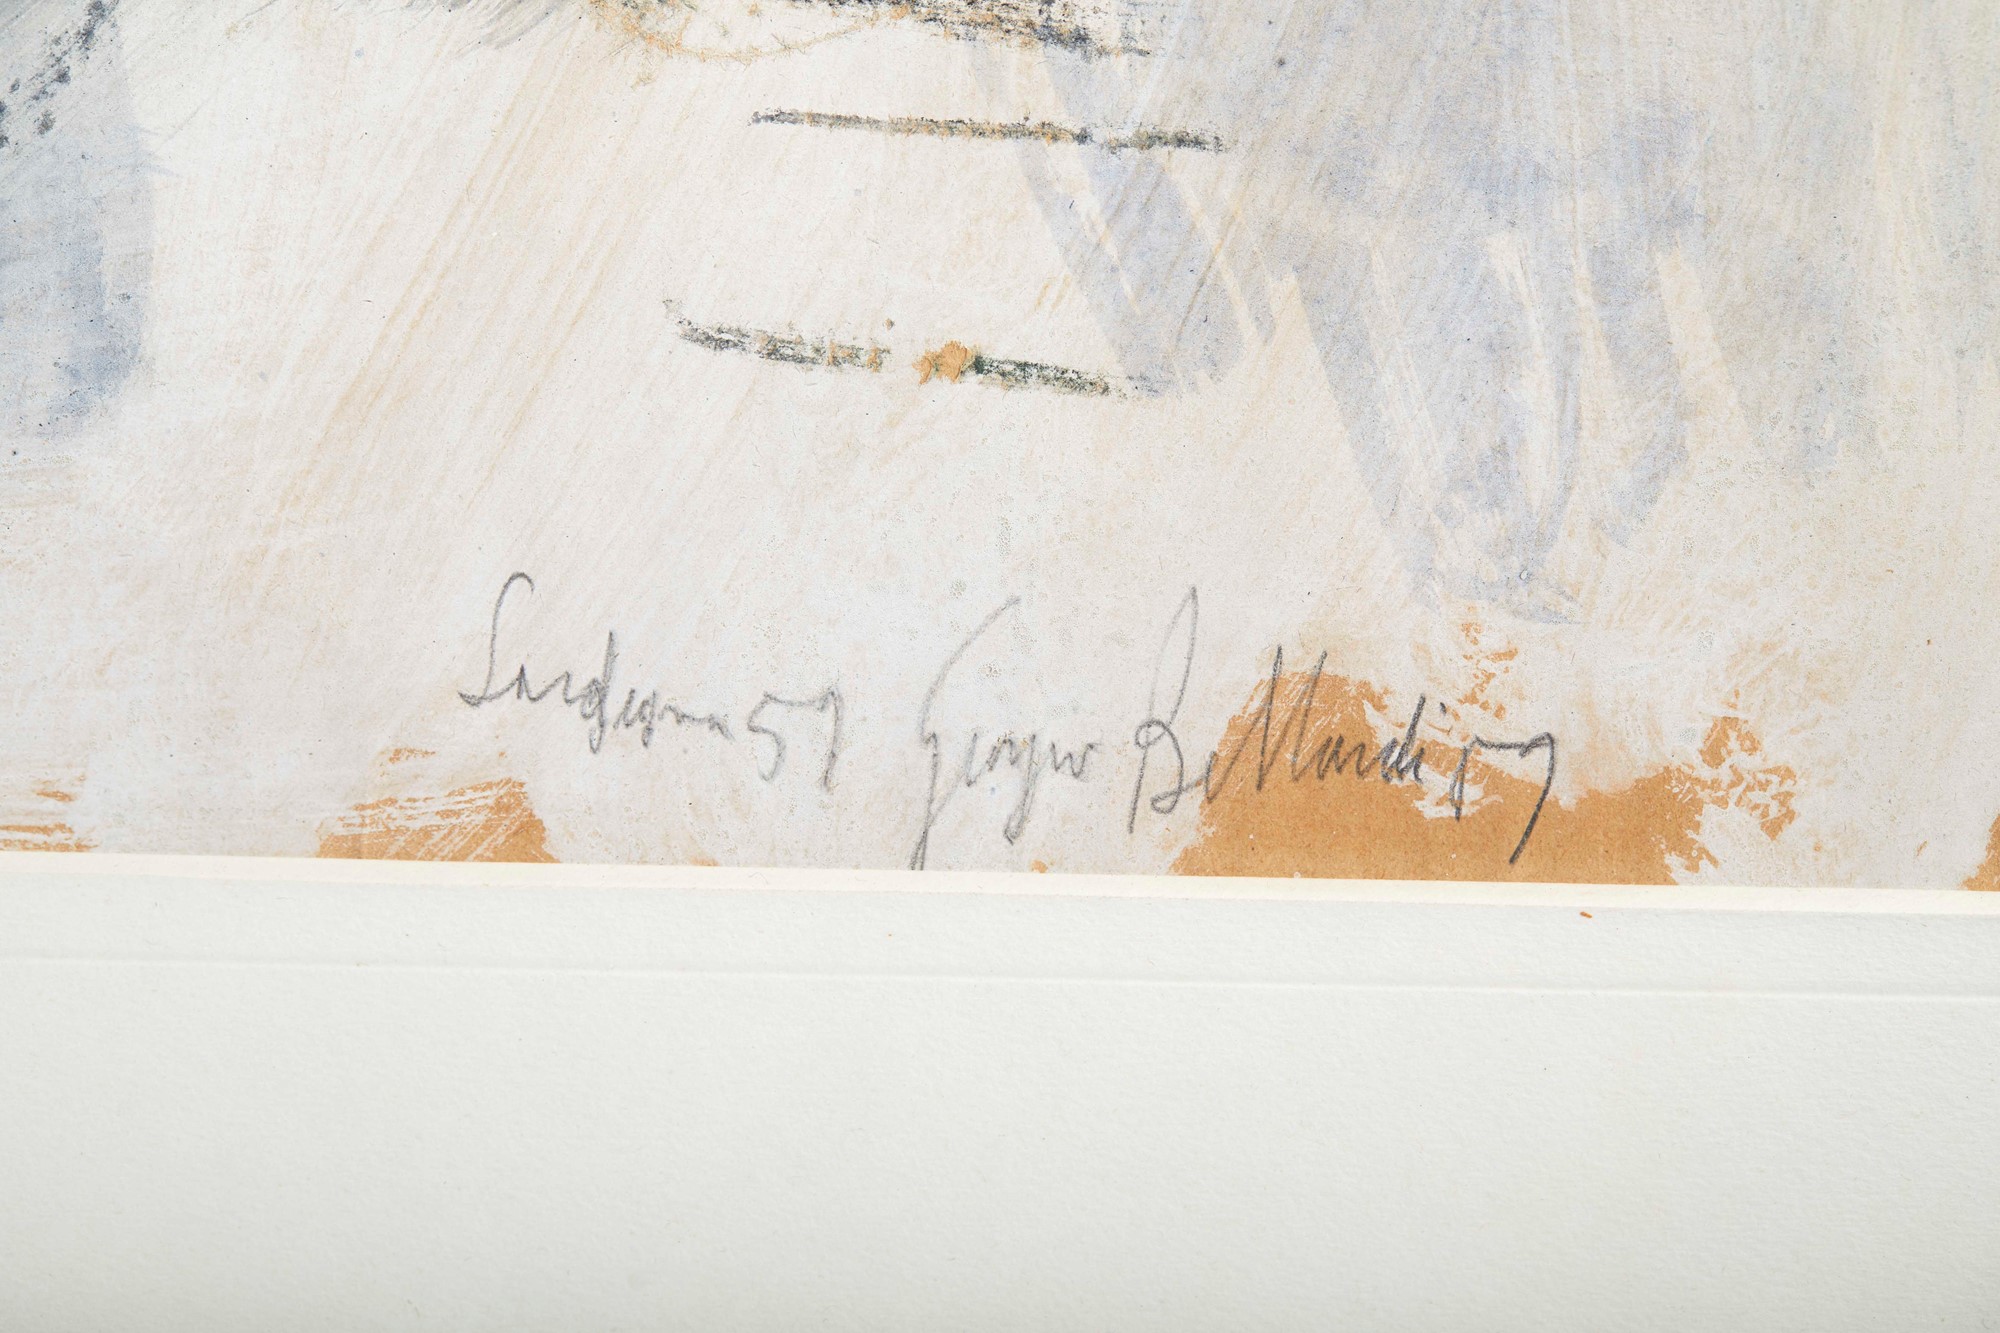 Sardegna 59 Giorgio Bellandi 59